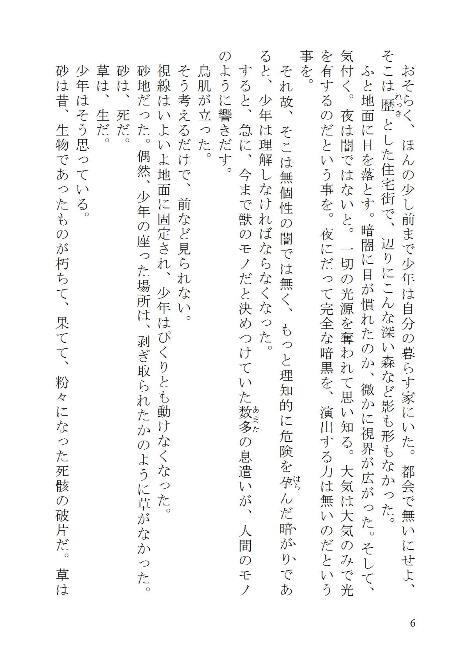 おそらく、ほんの少し前まで少年は自分の暮らす家にいた。都会で無いにせよ、
そこは歴とした住宅街で、辺りにこんな深い森など影も形もなかった。
ふと地面に目を落とす。暗闇に目が慣れたのか、微かに視界が広がった。そして、
気付く。夜は闇ではないと。一切の光源を奪われて思い知る。大気は大気のみで光
を有するのだという事を。夜にだって完全な暗黒を、演出する力は無いのだという
事を。
それ故、そこは無個性の闇では無く、もっと理知的に危険を孕んだ暗がりであ
ると、少年は理解しなければならなくなった。
すると、急に、今まで獣のモノだと決めつけていた数多の息遣いが、人間のモノ
のように響きだす。
鳥肌が立った。
そう考えるだけで、前など見られない。
視線はいよいよ地面に固定され、少年はぴくりとも動けなくなった。
砂地だった。偶然、少年の座った場所は、剥ぎ取られたかのように草がなかった。
砂は、死だ。
草は、生だ。
少年はそう思っている。
砂は昔、生物であったものが朽ちて、果てて、粉々になった死骸の破片だ。草は
6